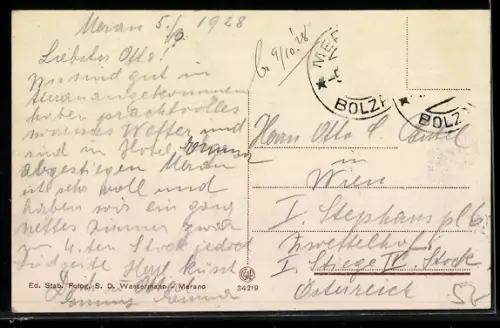 Meran 5./10. 1928
Liebster Otto!
Wir sind gut in
Meran angekommen
haben prachtvolles
warmes Wetter und
sind in Hotel
abgestiegen Meran
ist sehr voll und
haben wir ein ganz
nettes Zimmer zwar
im 4.ten Stock jedoch
Südseite Herzl. küsst
Dich
B 9/10.28
MER
BOLZ
BOLZ
Herrn Otto
in
Wien
I. Stephanspl 6
Zwettelhof
I Stiege IV. Stock
Österreich
52-
Ed. Stab. Fotog. S. D. Wassermann - Merano
34219